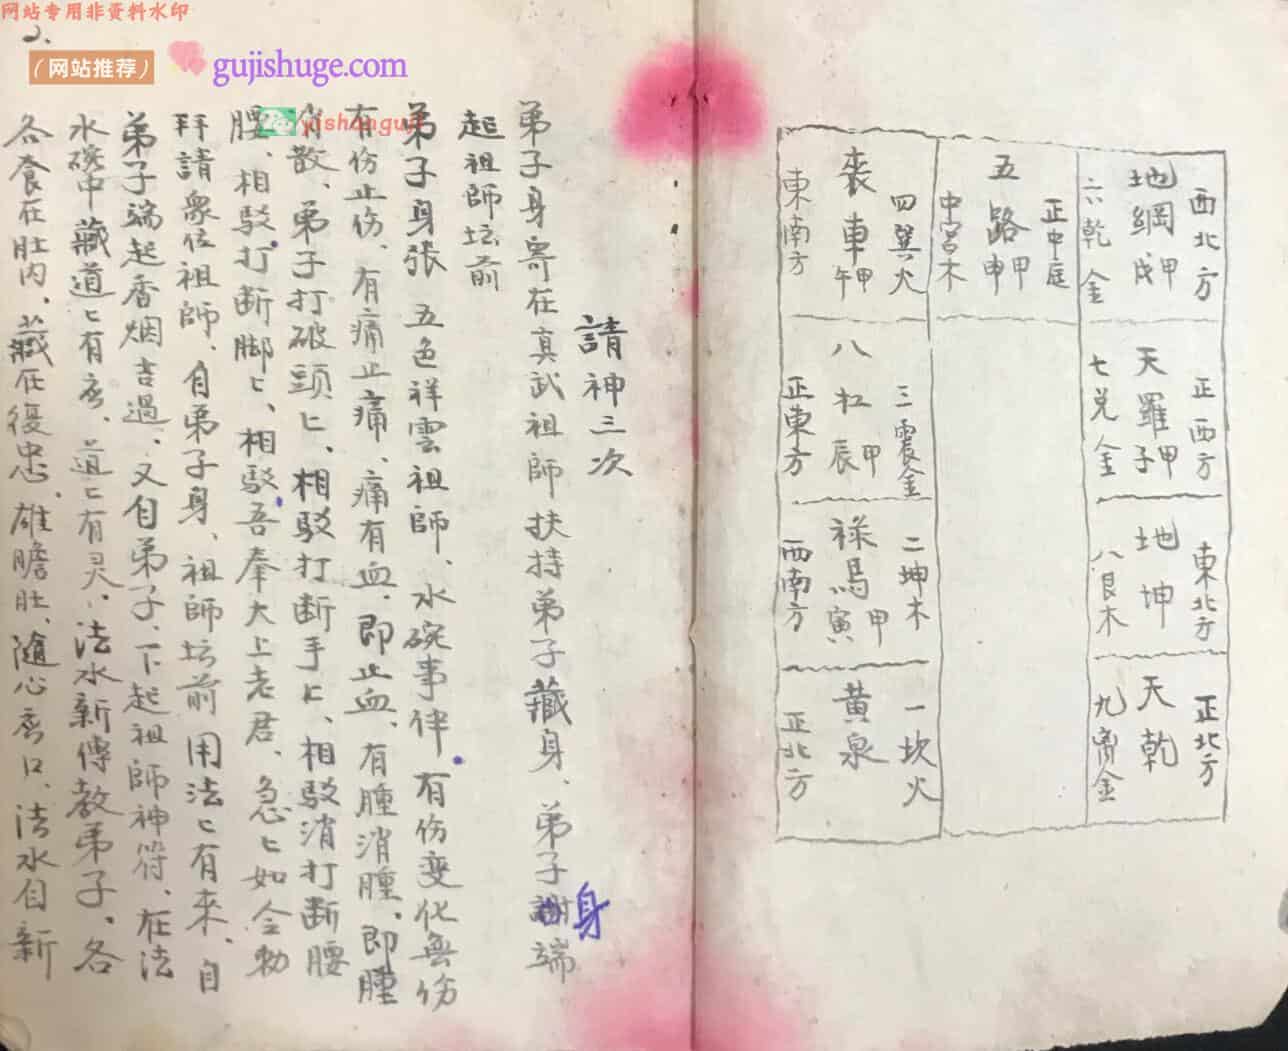 网站专用非资料水印
2.
（网站推荐）
gujishuge.com
yishunguji
西北方
地綱甲戌
六乾金
正西方
天羅甲子
七兑金
東北方
地坤
八艮木
正北方
天乾
九離金
正中庭
五路甲申
中宮木
四巽火
裘車甲午
東南方
三震金
八杠甲辰
正東方
二坤木
禄馬甲寅
西南方
一坎火
黄泉
正北方
請神三次
弟子身寄在真武祖師扶持弟子藏身、弟子身端
起祖師坛前
弟子身張 五色祥雲祖師、水碗事件、有伤变化無伤
有伤止伤、有痛止痛、痛有血、即止血、有腫消腫、即腫
消散、弟子打破頭匕、相駁打断手匕、相駁消打断腰
腰、相駁打断脚匕、相駁吾奉大上老君、急匕如令勅
拜請衆位祖師、自弟子身、祖師坛前用法匕有來、自
弟子端起香烟吉過、又自弟子、下起祖師神符、在法
水碗中藏道匕有 、道匕有灵、法水新傳教弟子、各
各食在肚内、藏在復忠、雄膽肚、随心 口、法水自新